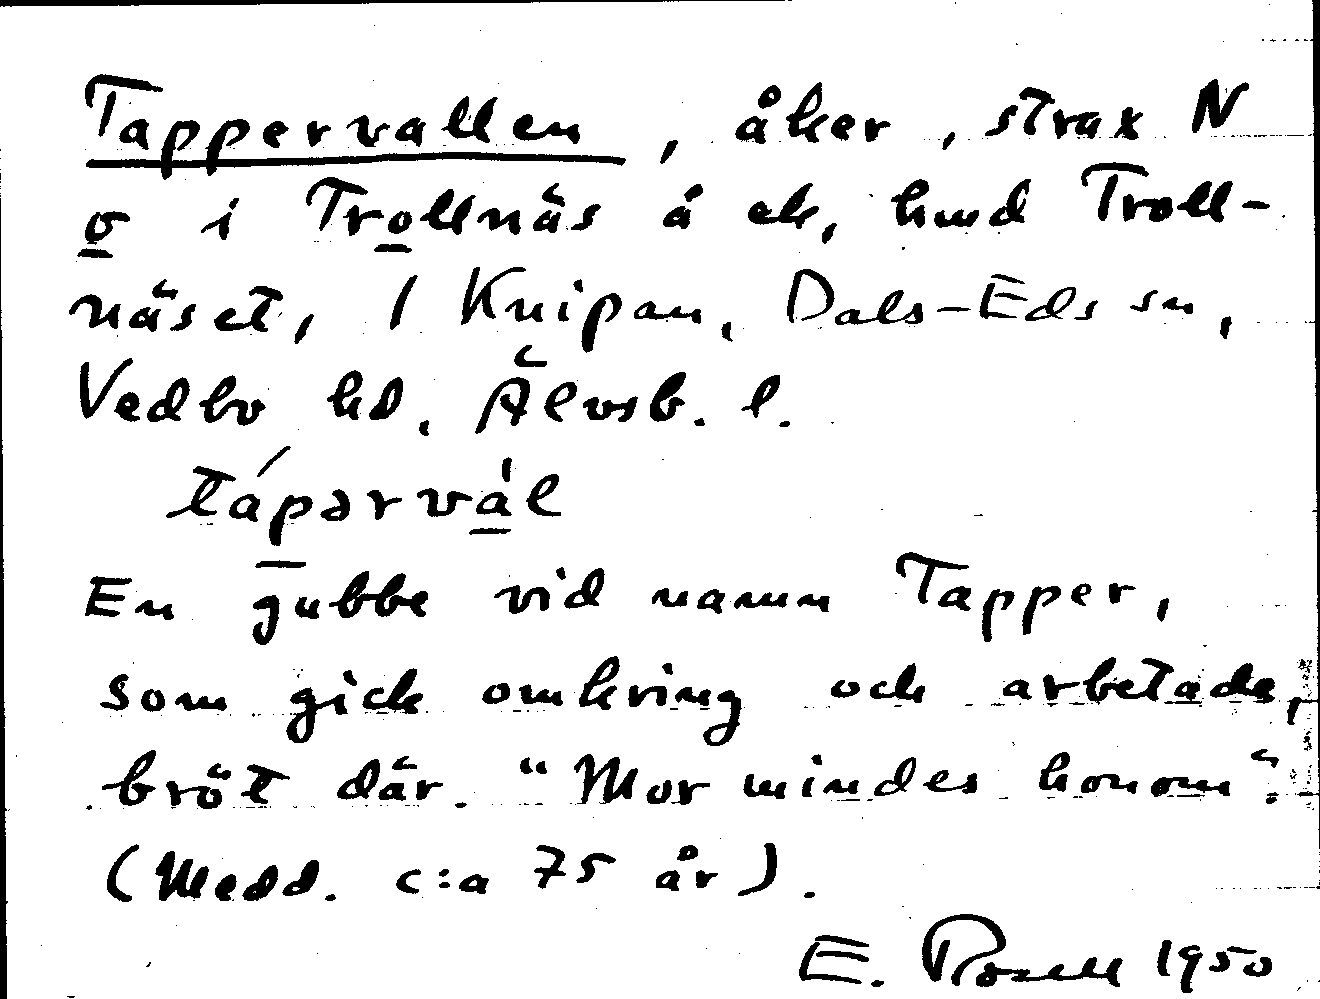 Tappervallen, åker, strax N
o i Trollnäs å ek, hmd Troll-
näset, 1 Knipan, Dals-Eds sn,
Vedbo hd, Älvsb. l.
tápərvàl
En gubbe vid namn Tapper,
som gick omkring och arbetade,
bröt där. "Mor mindes honom".
(Medd. c:a 75 år).
E. Rosell 1950